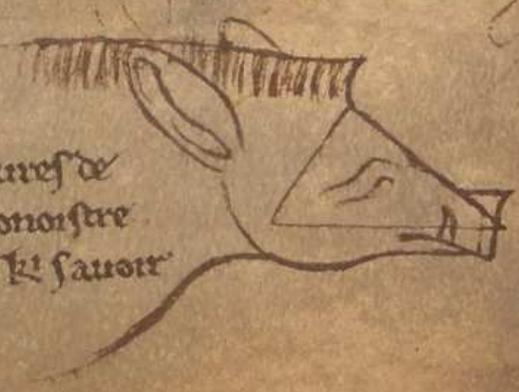 ures de
onoistre
ki sauoir